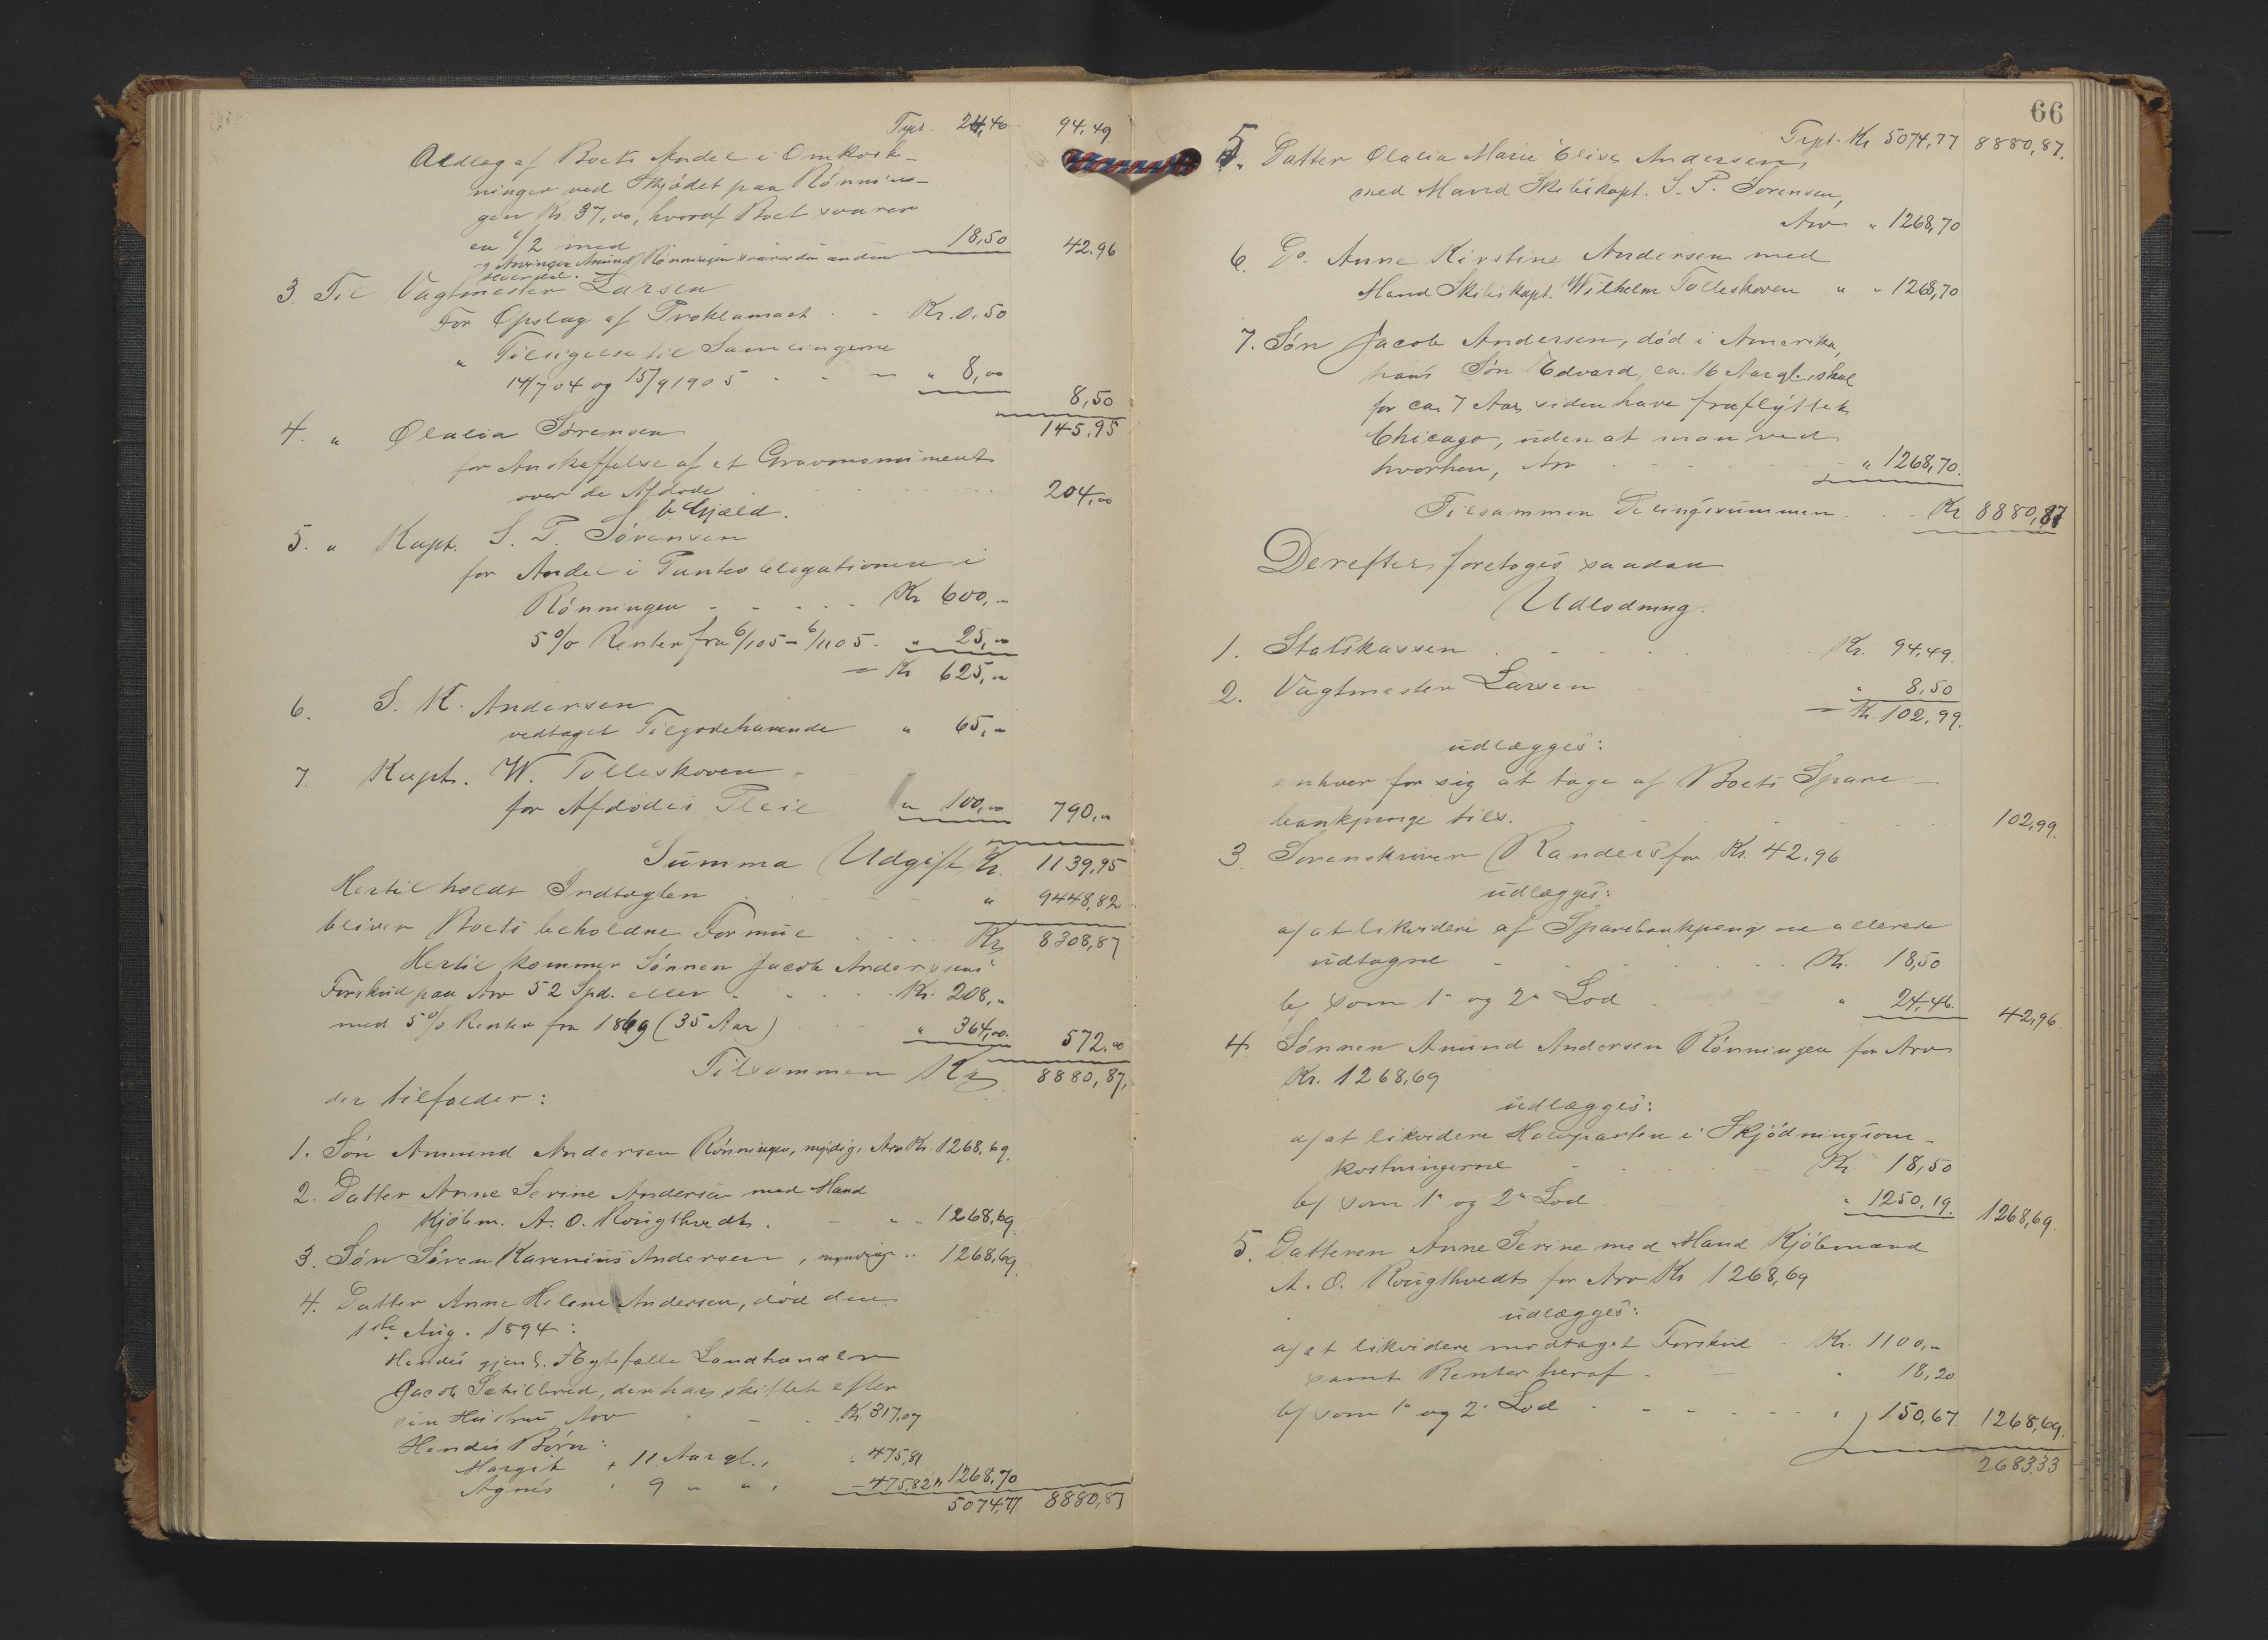 Tpt. 24,46 94,49
Udlæg af Boets Andel i Omkost-
ninger ved Skjødet paa Rønnin-
gen Kr. 37,00, hvoraf Boet svarer
en 1/2 med 18,50 42,96
og Arvingen Amund Rønningen svarer den anden
Halvdel.
3. Til Vagtmester Larsen
For Opslag af Proklamaet - Kr. 0,50
" Tilsigelse til Samlingerne
14/7 04 og 15/9 1905 - - - " 8,00 8,50
145,95
4. " Olalia Sørensen
for Anskaffelse af et Gravmonument
over de Afdøde 204,00
b Gjæld.
5. " Kapt. S. P. Sørensen
for Andel i Panteobligationen i
Rønningen - - - - Kr 600,-
5 % Renter fra 6/1 05 - 6/11 05. " 25,-
= Kr 625,-
6. S. K. Andersen
vedtaget Tilgodehavende " 65,-
7 Kapt. W. Tolleskoven
for Afdødes Pleie " 100,00 790,-
Summa Udgift Kr. 1139,95
Hertil holdt Indtægten " 9448,82
bliver Boets beholdne Formue Kr 8308,87
Hertil kommer Sønnen Jacob Anderssens
Forskud paa Arv 52 Spd. eller - Kr. 208,-
med 5 % Renter fra 1869 (35 Aar) " 364,00. 572,00
Tilsammen Kr 8880,87.
der tilfalder:
1. Søn Amund Andersen Rønningen, myndig, Arv Kr. 1268,69.
2. Datter Anne Serine Andersen med Mand
Kjøbm. A. O. Rougthvedt. - " - 1268,69.
3. Søn Søren Karenius Andersen, myndig " 1268,69.
4. Datter Anne Helene Andersen, død den
1ste Aug. 1894:
Hendes gjenl. Ægtefælle Landhandler
Jacob Sætilbred, der har skiftet efter
sin Hustru Arv - Kr. 317,07
Hendes Børn:
Margit, 11 Aar gl., " 475,81
Agnes, 9 " ", - 475,82 " 1268,70
5074,77 8880,87
66
Trpt. Kr. 5074,77 8880,87.
5. Datter Olalia Marie Elise Andersen
med Mand Skibskapt. S. P. Sørensen,
Arv " 1268,70
6. Do. Anne Kirstine Andersen med
Mand Skibskapt. Wilhelm Tolleskoven " " 1268,70
7. Søn Jacob Andersen, død i Amerika,
hans Søn Edvard, ca. 16 Aar gl., skal
for ca. 7 Aar siden have fraflyttet
Chicago, uden at man ved
hvorhen, Arv - - - " 1268,70.
Tilsammen Delingssummen - - Kr 8880,87
Derefter foretoges saadan
Udlodning.
1. Statskassen - - - Kr. 94,49.
2. Vagtmester Larsen " 8,50
= Kr. 102,99.
udlægges:
enhver for sig at tage af Boets Spare-
bankpenge tils. - - - 102,99.
3 Sorenskriver Randers for Kr. 42,96
udlægges:
a/ at likvidere af Sparebankpengene allerede
udtagne - - - Kr. 18,50
b/ som 1- og 2" Lod - " 24,46. 42,96.
4. Sønnen Amund Andersen Rønningen for Arv
Kr. 1268,69
udlægges:
a/ at likvidere Halvparten i Skjødningsom-
kostningerne - - Kr. 18,50
b/ som 1" og 2" Lod " 1250,19. 1268,69.
5. Datteren Anne Serine med Mand Kjøbmand
A. O. Rougthvedt for Arv Kr 1268,69
udlægges:
a/ at likvidere modtaget Forskud - Kr. 1100,-
samt Renter heraf - " 18,20
b/ som 1" og 2" Lod - - - " 150,67 1268,69.
2683,33